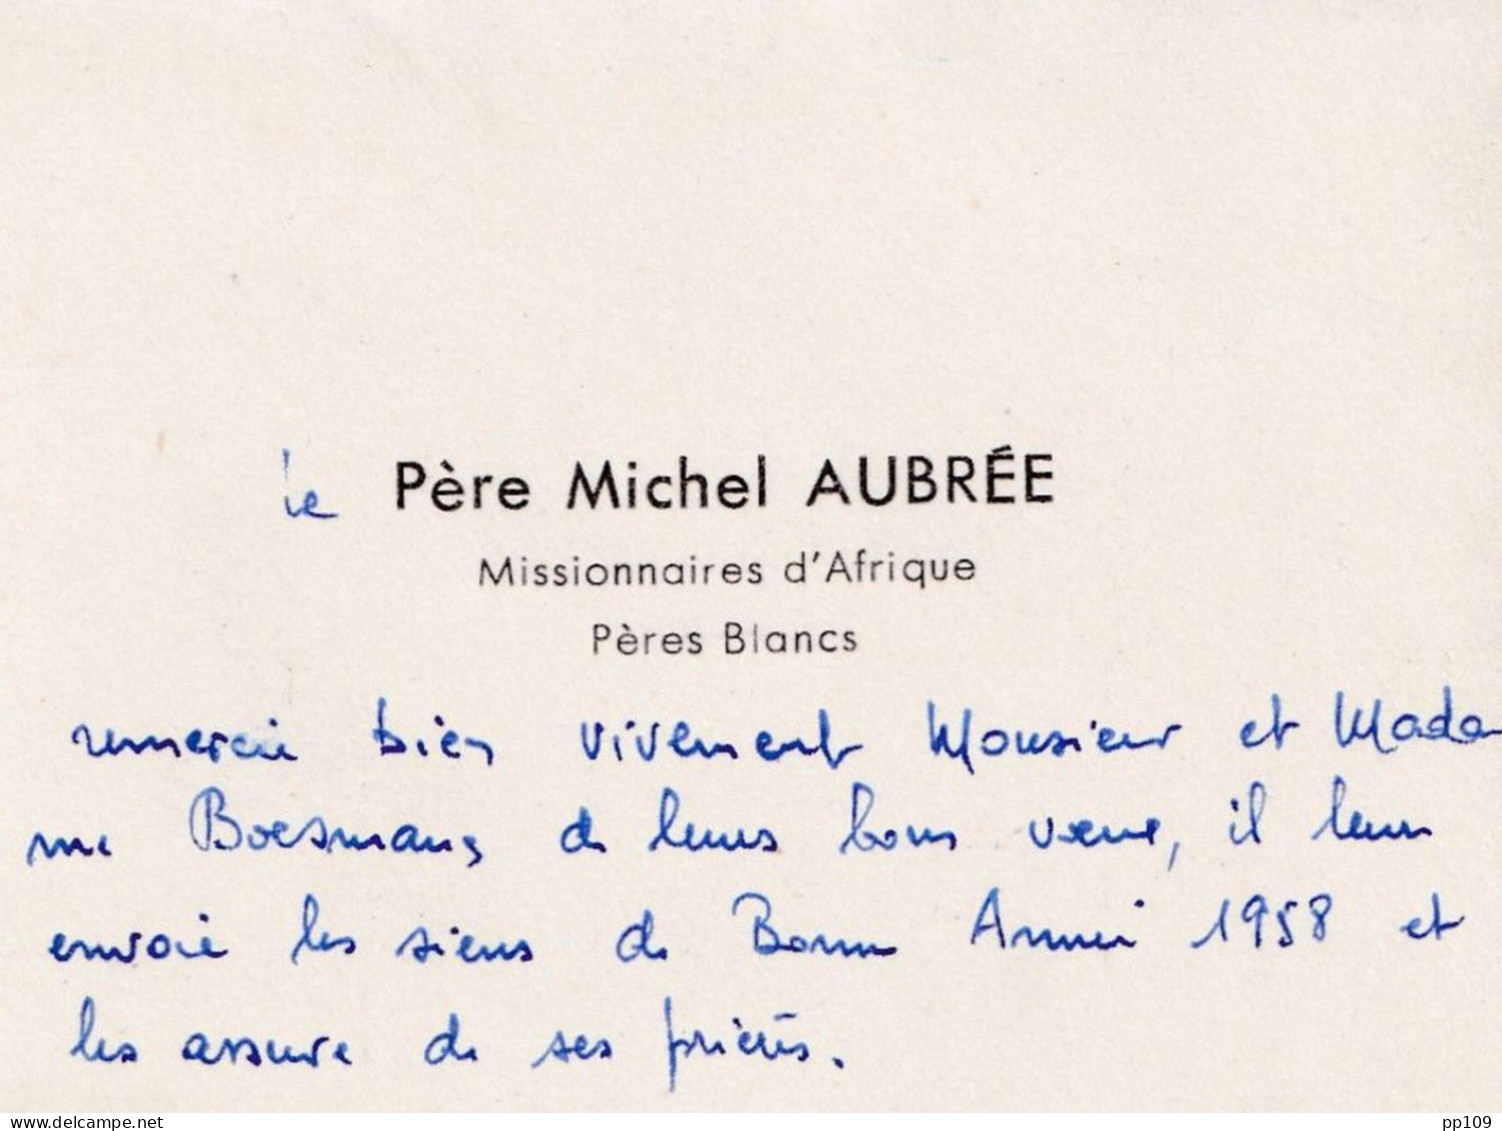 le Père Michel AUBRÉE
Missionnaires d'Afrique
Pères Blancs
remercie bien vivement Monsieur et Mada
me Boesmans de leurs bons vœux, il leur
envoie les siens de Bonne Année 1958 et
les assure de ses prières.
delcampe.net
pp109